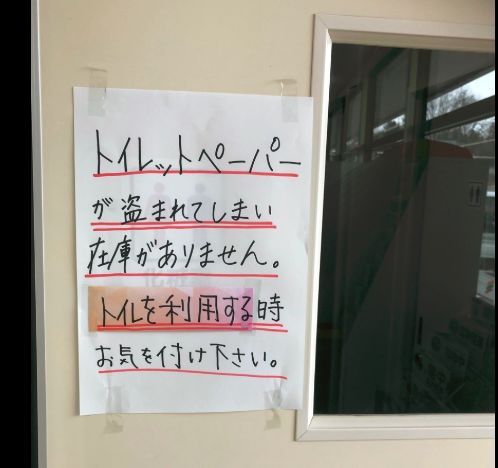 トイレットペーパー
が盗まれてしまい
在庫がありません。
トイレを利用する時
お気を付け下さい。